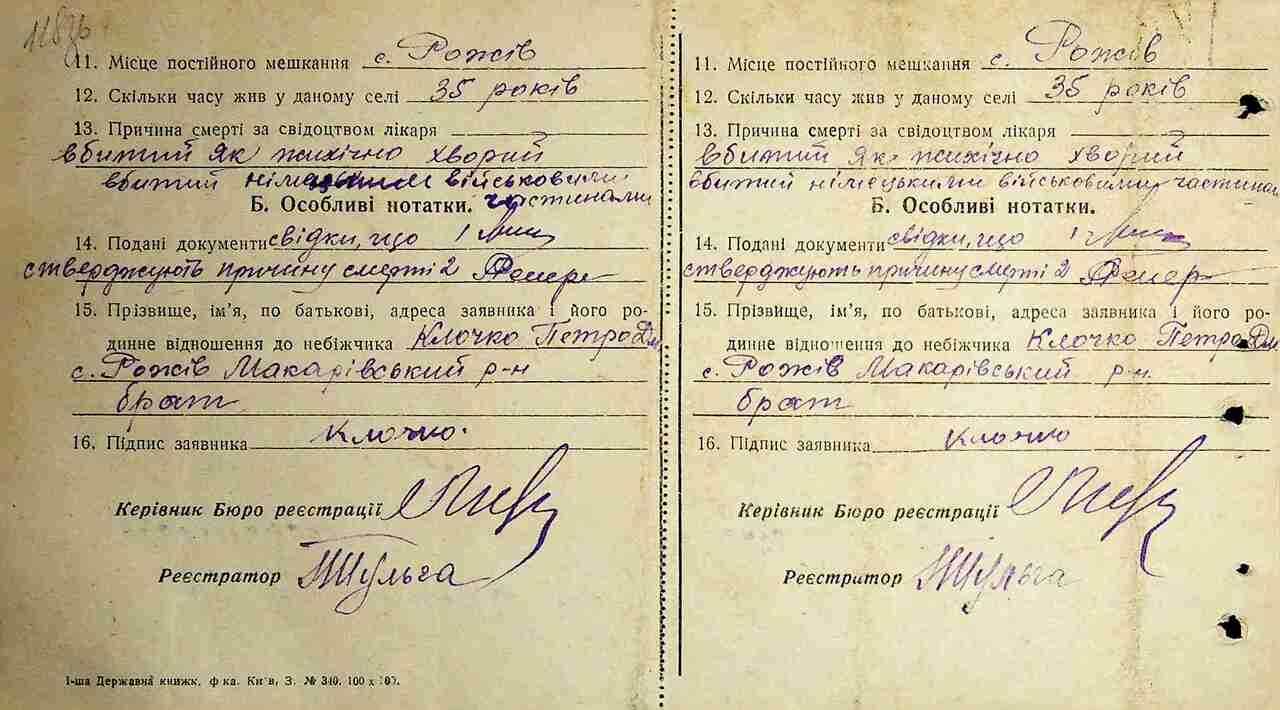 11. Місце постійного мешкання с. Рожів
12. Скільки часу жив у даному селі 35 років
13. Причина смерті за свідоцтвом лікаря
вбитий як психічно хворий
вбитий німецькими військовими
Б. Особливі нотатки. частинами
14. Подані документи свідки, що 1
стверджують причину смерті 2
15. Прізвище, ім'я, по батькові, адреса заявника і його ро-
динне відношення до небіжчика Клочко Петро Дм
с. Рожів Макарівський р-н
брат
16. Підпис заявника Клочко.
Керівник Бюро реєстрації
Реєстратор Шульга
1-ша Державна книжк. ф-ка. Київ, З. № 340. 100 х 100.
11. Місце постійного мешкання с. Рожів
12. Скільки часу жив у даному селі 35 років
13. Причина смерті за свідоцтвом лікаря
вбитий як психічно хворий
вбитий німецькими військовими частинам
Б. Особливі нотатки.
14. Подані документи свідки, що 1
стверджують причину смерті 2
15. Прізвище, ім'я, по батькові, адреса заявника і його ро-
динне відношення до небіжчика Клочко Петро Дм
с. Рожів Макарівський р-н
брат
16. Підпис заявника Клочко
Керівник Бюро реєстрації
Реєстратор Шульга